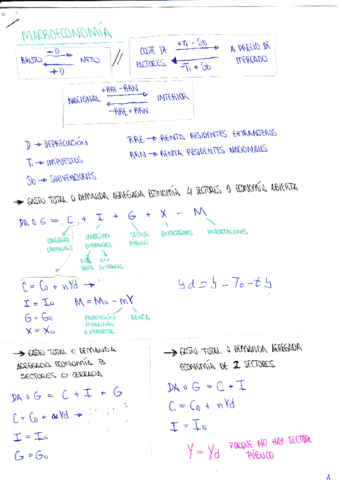 MACROECONOMÍA
BRUTO -D → NETO ← +D // COSTE DE FACTORES +Ti - Sb → ← -Ti + Sb A PRECIO DE MERCADO
NACIONAL +RRE - RRN → ← -RRE + RRN INTERIOR
D → DEPRECIACIÓN
RRE → RENTA RESIDENTES EXTRANJEROS
Ti → IMPUESTOS
RRN → RENTA RESIDENTES NACIONALES
Sb → SUBVENCIONES
→ GASTO TOTAL O DEMANDA AGREGADA ECONOMÍA 4 SECTORES O ECONOMÍA ABIERTA
DA o G = C + I + G + X - M
CONSUMO
INVERSIÓN
SECTOR PÚBLICO
EXPORTACIONES
IMPORTACIONES
C = C0 + nYd →
yd = y - T0 - ty
I = I0
M = M0 - mY
G = G0
PROPENSIÓN MARGINAL A IMPORTAR
RENTA
X = X0
→ GASTO TOTAL O DEMANDA
AGREGADA ECONOMÍA 3
SECTORES O CERRADA
DA o G = C + I + G
C = C0 + nYd →
I = I0
G = G0
→ GASTO TOTAL O DEMANDA AGREGADA
ECONOMÍA DE 2 SECTORES
DA o G = C + I
C = C0 + nYd
I = I0
Y = Yd PORQUE NO HAY SECTOR
PÚBLICO